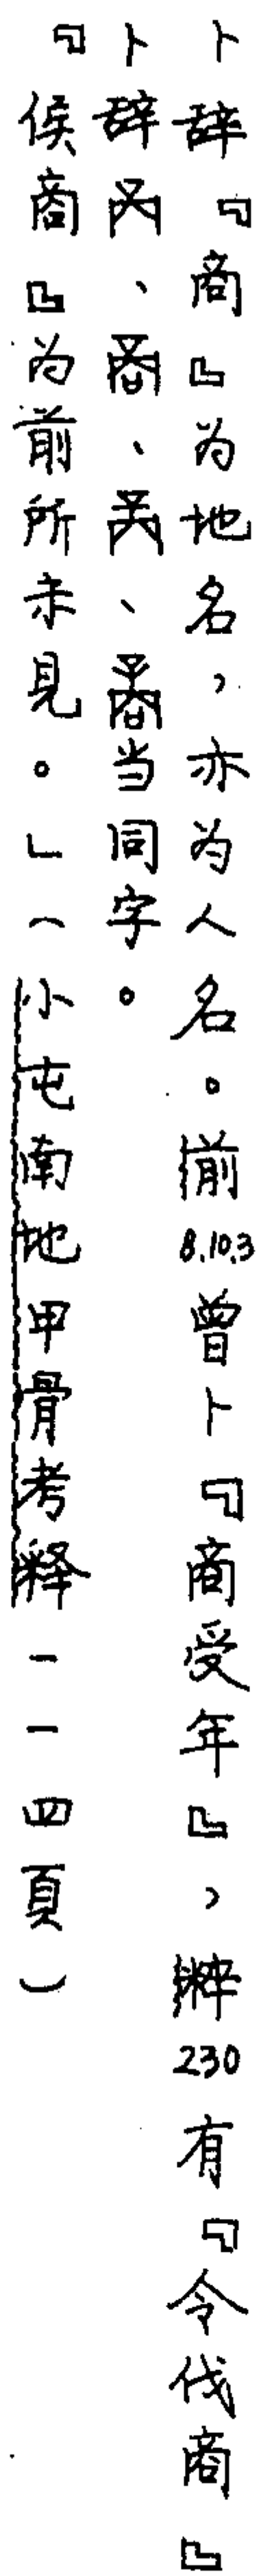 卜辞『商』为地名，亦为人名。前8.10.3曾卜『商受年』，粹230有『令伐商』
卜辞、、、当同字。
『侯商』为前所未見。」（小屯南地甲骨考释一一四頁）